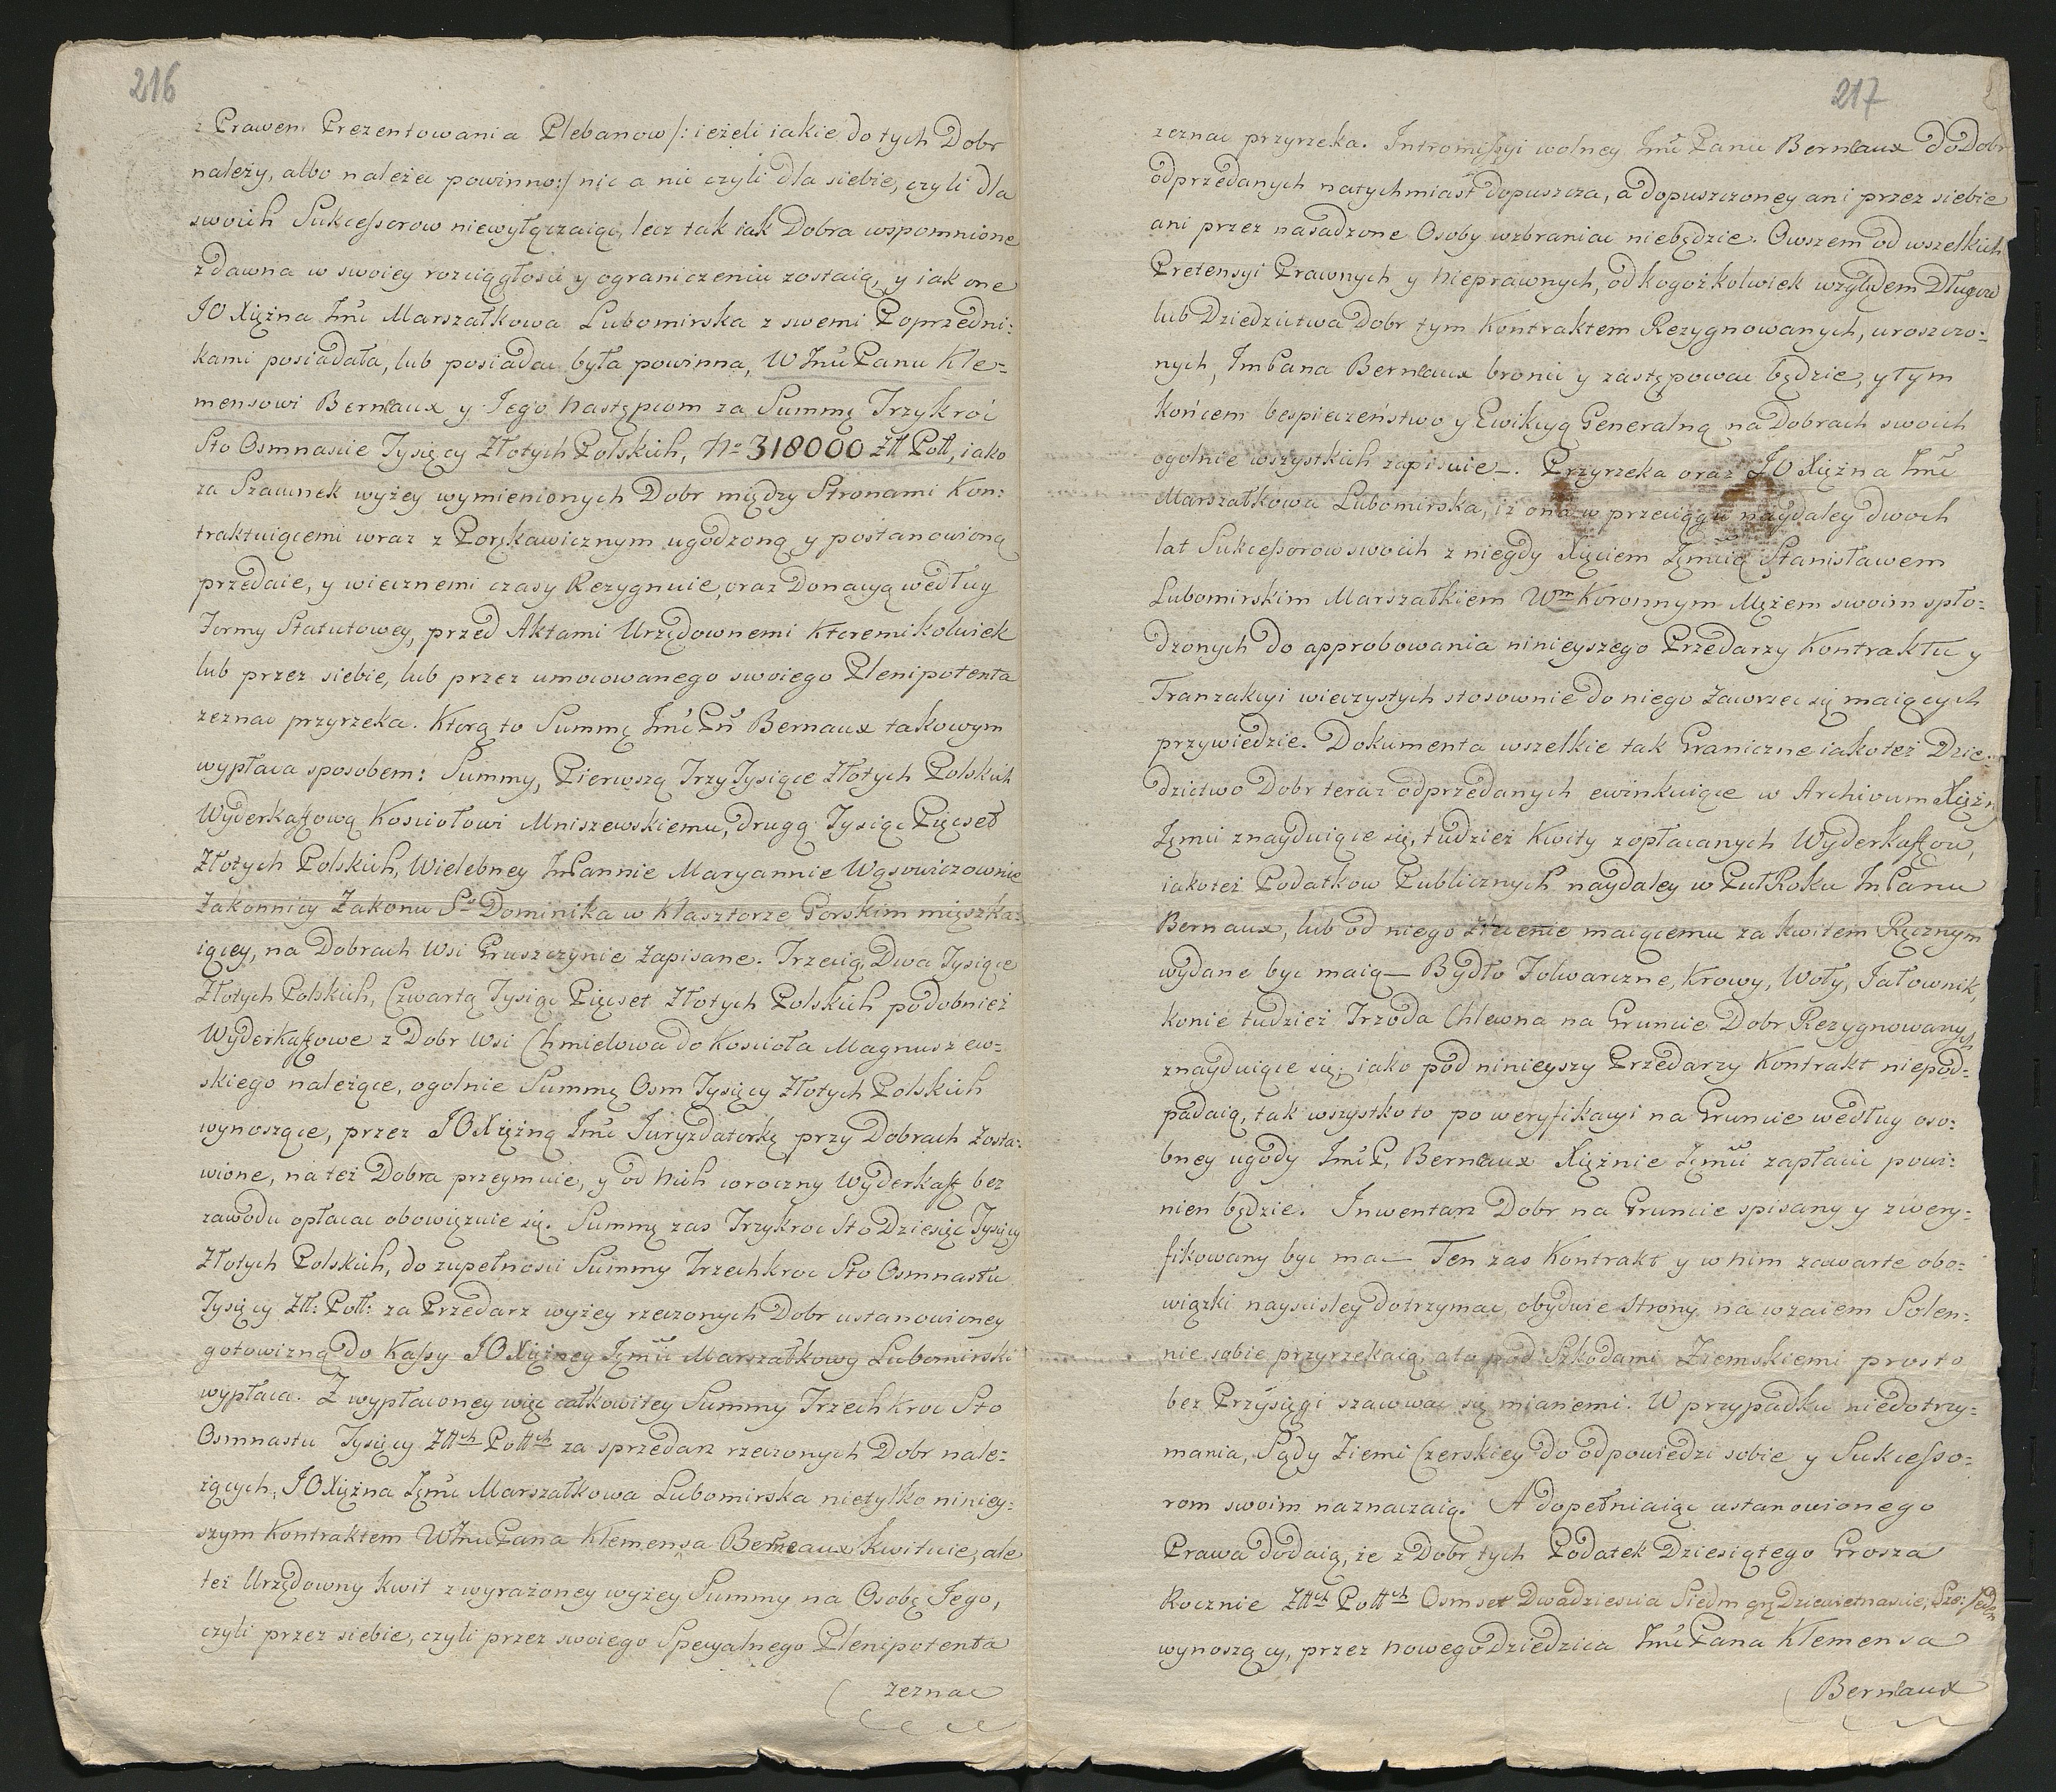 216
z Prawem Prezentowania Plebanow /: ieżeli iakie do tych Dobr
należy, albo należeć powinno :/ nic a nic czyli dla siebie, czyli dla
swoich Sukcessorow niewyłączaiąc, lecz tak iak Dobra wspomnione
zdawna w swoiey rozciągłości y ograniczeniu zostaią, y iak one
JO Xiężna Jmć Marszałkowa Lubomirska z swemi Poprzedni:
kami posiadała, lub posiadać była powinna, W JmćPanu Kle=
mensowi Bernaux y Jego Następcom za Summę Trzykroć
Sto Osmnaście Tysięcy Złotych Polskich, No 318000 Złł Poll, iako
za Szacunek wyżey wymienionych Dobr między Stronami Kon:
traktuiącemi wraz z Porękawicznym ugodzoną y postanowioną
przedaie, y wiecznemi czasy Rezygnuie, oraz Donacyą według
Formy Statutowey, przed Aktami Urzędownemi Ktoremikolwiek
lub przez siebie, lub przez umocowanego swoiego Plenipotenta
zeznać przyrzeka. Ktorą to Summę Jmć Pn Bernaux takowym
wypłaca sposobem: Summy, Pierwszą Trzy Tysiące Złotych Polskich
Wyderkaffową Kosciołowi Mniszewskiemu, drugą Tysiąc Pięcset
Złotych Polskich, Wielebney JmPannie Maryannie Wąsowiczownie
Zakonnicy Zakonu So Dominika w Klasztorze Gorskim mięszka:
iącey, na Dobrach Wsi Gruszczynie Zapisane. Trzecią, Dwa Tysiące
Złotych Polskich, Czwartą Tysiąc Pięcset Złotych Polskich podobnież
Wyderkaffowe z Dobr Wsi Chmielowa do Kosciola Magnuszew=
skiego należące, ogolnie Summę Osm Tysięcy Złotych Polskich
wynoszące, przez JO Xiężną Jmć Juryzdatorkę przy Dobrach zosta:
wione, na też Dobra przeymuie, y od Nich coroczny Wyderkaff bez
zawodu opłacać obowięzuie się. Summę zas Trzykroc Sto Dziesięc Tysięcy
Złotych Polskich, do zupełnosci Summy Trzechkroc Sto Osmnastu
Tysięcy Złł: Poll: za Przedarz wyżey rzeczonych Dobr ustanowioney
gotowizną do Kassy JO Xiężney Jmci Marszałkowy Lubomirski
wypłaca. Z wypłaconey więc całkowitey Summy Trzech kroc Sto
Osmnastu Tysięcy Złłch Pollch za sprzedarz rzeczonych Dobr nale=
żących, JO Xiężna Jmć Marszałkowa Lubomirska nietylko niniey:
szym Kontraktem W JmćPana Klemensa Bernaux kwituie, ale
też Urzędowny kwit z wyrażoney wyżey Summy na Osobę Jego,
czyli przez siebie, czyli przez swoiego Specyalnego Plenipotenta
zeznac
217
zeznac przyrzeka. Intromissyi wolney Jmć Panu Bernaux do Dobr
odprzedanych natychmiast dopuszcza, a dopuszczoney ani przez siebie
ani przez nasadzone Osoby wzbraniac niebędzie. Owszem od wszelkich
Pretensyi Prawnych y Nieprawnych, od kogożkolwiek względem Długow
lub Dziedzictwa Dobr tym Kontraktem Rezygnowanych, uroszczo=
nych, JmPana Bernaux bronić y zastępować będzie, y tym
końcem bespieczeństwo y Ewikcyą Generalną na Dobrach swoich
ogolnie wszystkich zapisuie. Przyrzeka oraz JO Xiężna Jmć
Marszałkowa Lubomirska, iż ona w przeciągu naydaley dwoch
lat Sukcessorow swoich z niegdy Xięciem Jmcią Stanisławem
Lubomirskim Marszałkiem Wm Koronnym Mężem swoim spło=
dzonych do approbowania ninieyszego Przedarzy Kontraktu y
Tranzakcyi wieczystych stosownie do niego zawrzec się maiących
przywiedzie. Dokumenta wszelkie tak Graniczne iako też Dzie:
dzictwo Dobr teraz odprzedanych ewinkuiące w Archivum Xiężny
Jmci znayduiące się, tudzież Kwity z opłacanych Wyderkaffow,
iakoteż Podatkow Publicznych naydaley w Puł Roku JmPanu
Bernaux, lub od niego zlecenie maiącemu za kwitem Ręcznym
wydane byc maią Bydło Folwarczne, Krowy, Woły, Jałownik,
konie tudzież Trzoda Chlewna na Gruncie Dobr Rezygnowanych
znayduiące się, iako pod ninieyszy Przedarzy Kontrakt niepod=
padaią, tak wszystko to po weryfikacyi na Gruncie według oso:
bney ugody Jmć P. Bernaux Xiężnie Jmci zapłacić powi:
nien będzie. Inwentarz Dobr na Gruncie spisany y zwery=
fikowany byc ma Ten zas Kontrakt y w nim zawarte obo=
wiązki nayscisley dotrzymac, obydwie Strony na wzaiem Solen=
nie sobie przyrzekaią, a to pod Szkodami Ziemskiemi prosto
bez Przysięgi szacować się mianemi. W przypadku niedotrzy=
mania, Sądy Ziemi Czerskiey do odpowiedzi sobie y Sukcesso=
rom swoim naznaczaią. A dopełniaiąc ustanowionego
Prawa dodaią, że z Dobr tych Podatek Dziesiątego Grosza
Rocznie Złłch Pollch Osmset Dwadziescia Siedm gr. Dziewietnascie, Szo: Jeden
wynoszący, przez Nowego Dziedzica Jmć Pana Klemensa
Bernaux